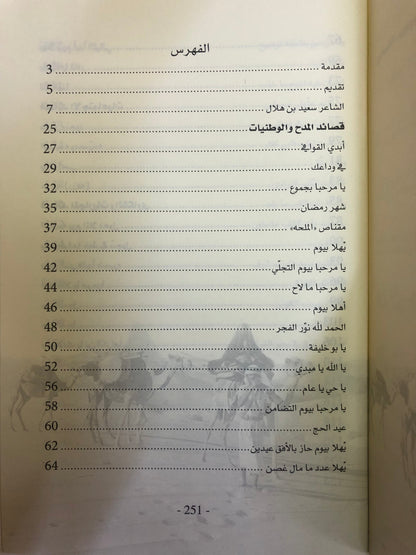 الفهرس
مقدمة 3
تقديم 5
الشاعر سعيد بن هلال 7
قصائد المدح والوطنيات 25
أبدي القوافي 27
في وداعك 29
يا مرحبا بجموع 32
شهر رمضان 35
مقناص «الملحه» 37
يْهلا بيوم 39
يا مرحبا بيوم التجلّي 42
يا مرحبا ما لاح 44
أهلا بيوم 46
الحمد لله نوّر الفجر 48
يا بو خليفة 50
يا الله يا مبدي 52
يا حي يا عام 56
يا مرحبا بيوم التضامن 58
عيد الحج 60
يْهلا بيوم حاز بالأفق عيدين 62
يْهلا عدد ما مال غصن 64
- 251 -